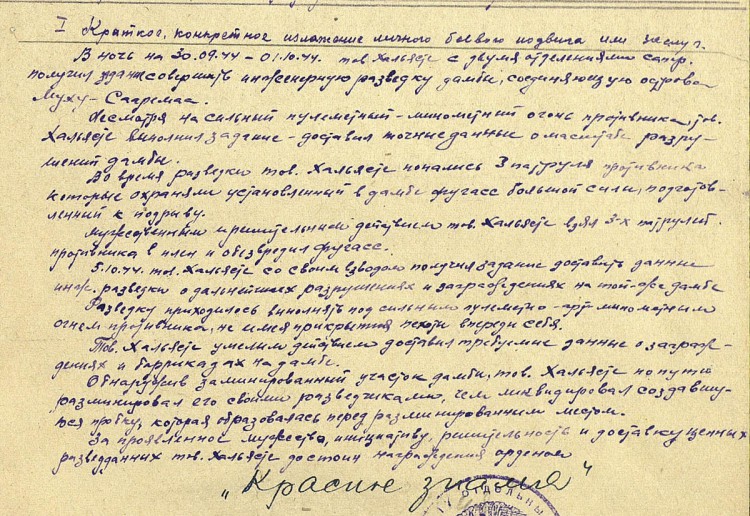 I Краткое, конкретное изложение личного боевого подвига или заслуг.
В ночь на 30.09.44 – 01.10.44 тов. Хальясте с двумя отделениями сапер.
получил зд. совершить инженерную разведку дамбы, соединяющую острова
Муху - Сааремаа.
Несмотря на сильный пулеметный - минометный огонь противника, тов.
Хальясте выполнил задание - доставил точные данные о масштабе разру-
шений дамбы.
Во время разведки тов. Хальясте попались 3 патруля противника
которые охраняли установленный в дамбе фугасс большой силы, подготов-
ленный к подрыву.
Мужественным и решительным действием тов. Хальясте взял 3-х патрулей
противника в плен и обезвредил фугасс.
5.10.44. тов. Хальясте со своим взводом получил задание доставить данные
инж. разведки о дальнейших разрушениях и заграждениях на той-же дамбе
Разведку приходилось выполнять под сильным пулеметно-арт-минометным
огнем противника, не имея прикрытия пехоты впереди себя.
Тов. Хальясте умелым действием доставил требуемые данные о заграж-
дениях и баррикадах на дамбе.
Обнаружив заминированный участок дамбы, тов. Хальясте по пути
разминировал его своими разведчиками, чем ликвидировал создавшу-
юся пробку, которая образовалась перед разминированным местом.
За проявленное мужество, инициативу, решительность и доставку ценных
разведданных тов. Хальясте достоин награждения орденом
„Красное знамя"
ОТДЕЛЬНЫ